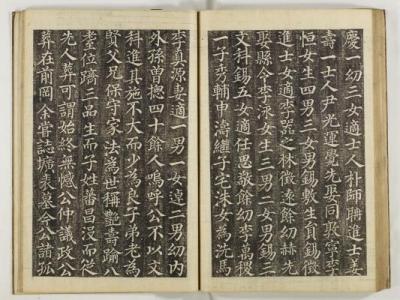 慶一幼三女適士人朴師聃進士
壽一士人尹光運覺先娶同敦寧李
恒女生四男二女男錫敷生員錫徵
進士女適李器之林徵遠餘幼赫光
娶縣令李泳女生三男二女男錫三
文科錫五女適任思敬餘幼李萬稷
一子秀輔申濤繼子宅洙女為洗馬
李真源妻適一男一女遑二男幼內
外孫曾摠四十餘人嗚呼公不以文
科進其施不大而少為良子弟老為
賢父兄保守家法為世稱艷壽踰八
耋位躋三品生而子姓蕃昌沒而從
先人葬可謂始終無憾公仲議政公
葬在前岡余嘗誌壙表今八諸孤